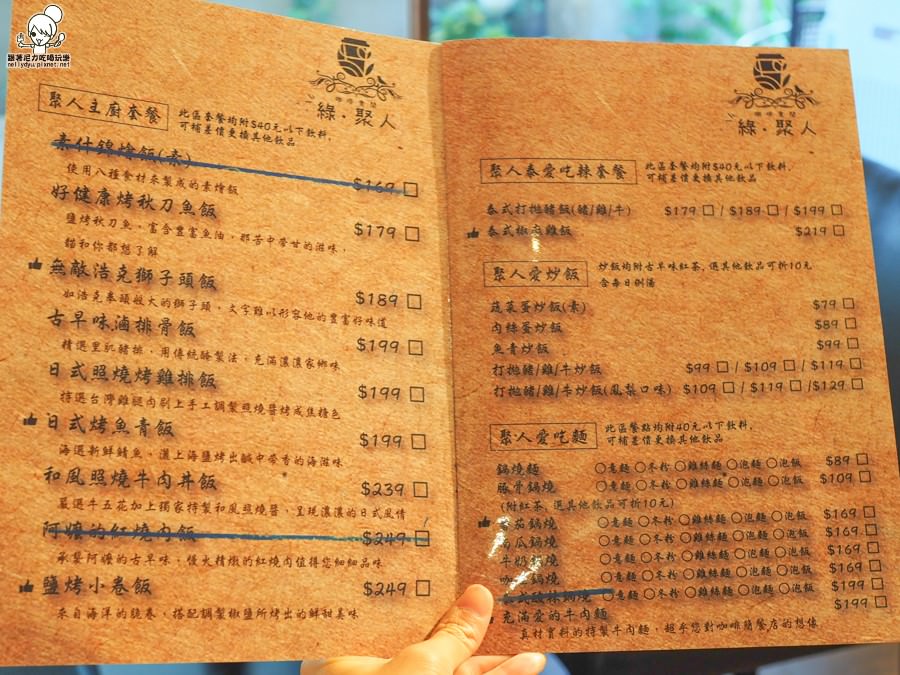 跟著尼力吃喝玩樂
nellydyu.pixnet.net
咖啡食間
綠·聚人
聚人主廚套餐
此區套餐均附$40元以下飲料,
可補差價更換其他飲品
素什錦燴飯(素) $169
使用八種食材來製成的素燴飯
好健康烤秋刀魚飯 $179
鹽烤秋刀魚，富含豐富魚油，那苦中帶甘的滋味，
貓和你都想了解
無敵浩克獅子頭飯 $189
如浩克拳頭般大的獅子頭，文字難以形容他的豐富好味道
古早味滷排骨飯 $199
精選里肌豬排，用傳統醃製法，充滿濃濃家鄉味
日式照燒烤雞排飯 $199
特選台灣雞腿肉刷上手工調製照燒醬烤成焦糖色
日式烤魚青飯 $199
海選新鮮鯖魚，灑上海鹽烤出鹹中帶香的海滋味
和風照燒牛肉丼飯 $239
嚴選牛五花加上獨家特製和風照燒醬，呈現濃濃的日式風情
阿嬤的紅燒肉飯 $249
承襲阿嬤的古早味，慢火精燉的紅燒肉值得您細細品味
鹽烤小卷飯 $249
來自海洋的脆卷，搭配調製椒鹽所烤出的鮮甜美味
咖啡食間
綠·聚人
聚人泰愛吃辣套餐
此區套餐均附$40元以下飲料,
可補差價更換其他飲品
泰式打拋豬飯(豬/雞/牛) $179 / $189 / $199
泰式椒麻雞飯 $219
聚人愛炒飯
炒飯均附古早味紅茶, 選其他飲品可折10元
含每日例湯
蔬菜蛋炒飯(素) $79
肉絲蛋炒飯 $89
魚青炒飯 $99
打拋豬/雞/牛炒飯 $99 / $109 / $119
打拋豬/雞/牛炒飯(鳳梨口味) $109 / $119 / $129
聚人愛吃麵
此區餐點均附40元以下飲料,
可補差價更換其他飲品
鍋燒麵 ○意麵 ○冬粉 ○雞絲麵 ○泡麵 ○泡飯 $89
豚骨鍋燒 ○意麵 ○冬粉 ○雞絲麵 ○泡麵 ○泡飯 $109
(附紅茶, 選其他飲品可折10元)
番茄鍋燒 ○意麵 ○冬粉 ○雞絲麵 ○泡麵 ○泡飯 $169
南瓜鍋燒 ○意麵 ○冬粉 ○雞絲麵 ○泡麵 ○泡飯 $169
牛奶鍋燒 ○意麵 ○冬粉 ○雞絲麵 ○泡麵 ○泡飯 $169
鍋燒 ○意麵 ○冬粉 ○雞絲麵 ○泡麵 ○泡飯 $169
鍋燒 ○意麵 ○冬粉 ○雞絲麵 ○泡麵 ○泡飯 $199
充滿愛的牛肉麵 $199
真材實料的特製牛肉麵，超乎您對咖啡簡餐店的想像